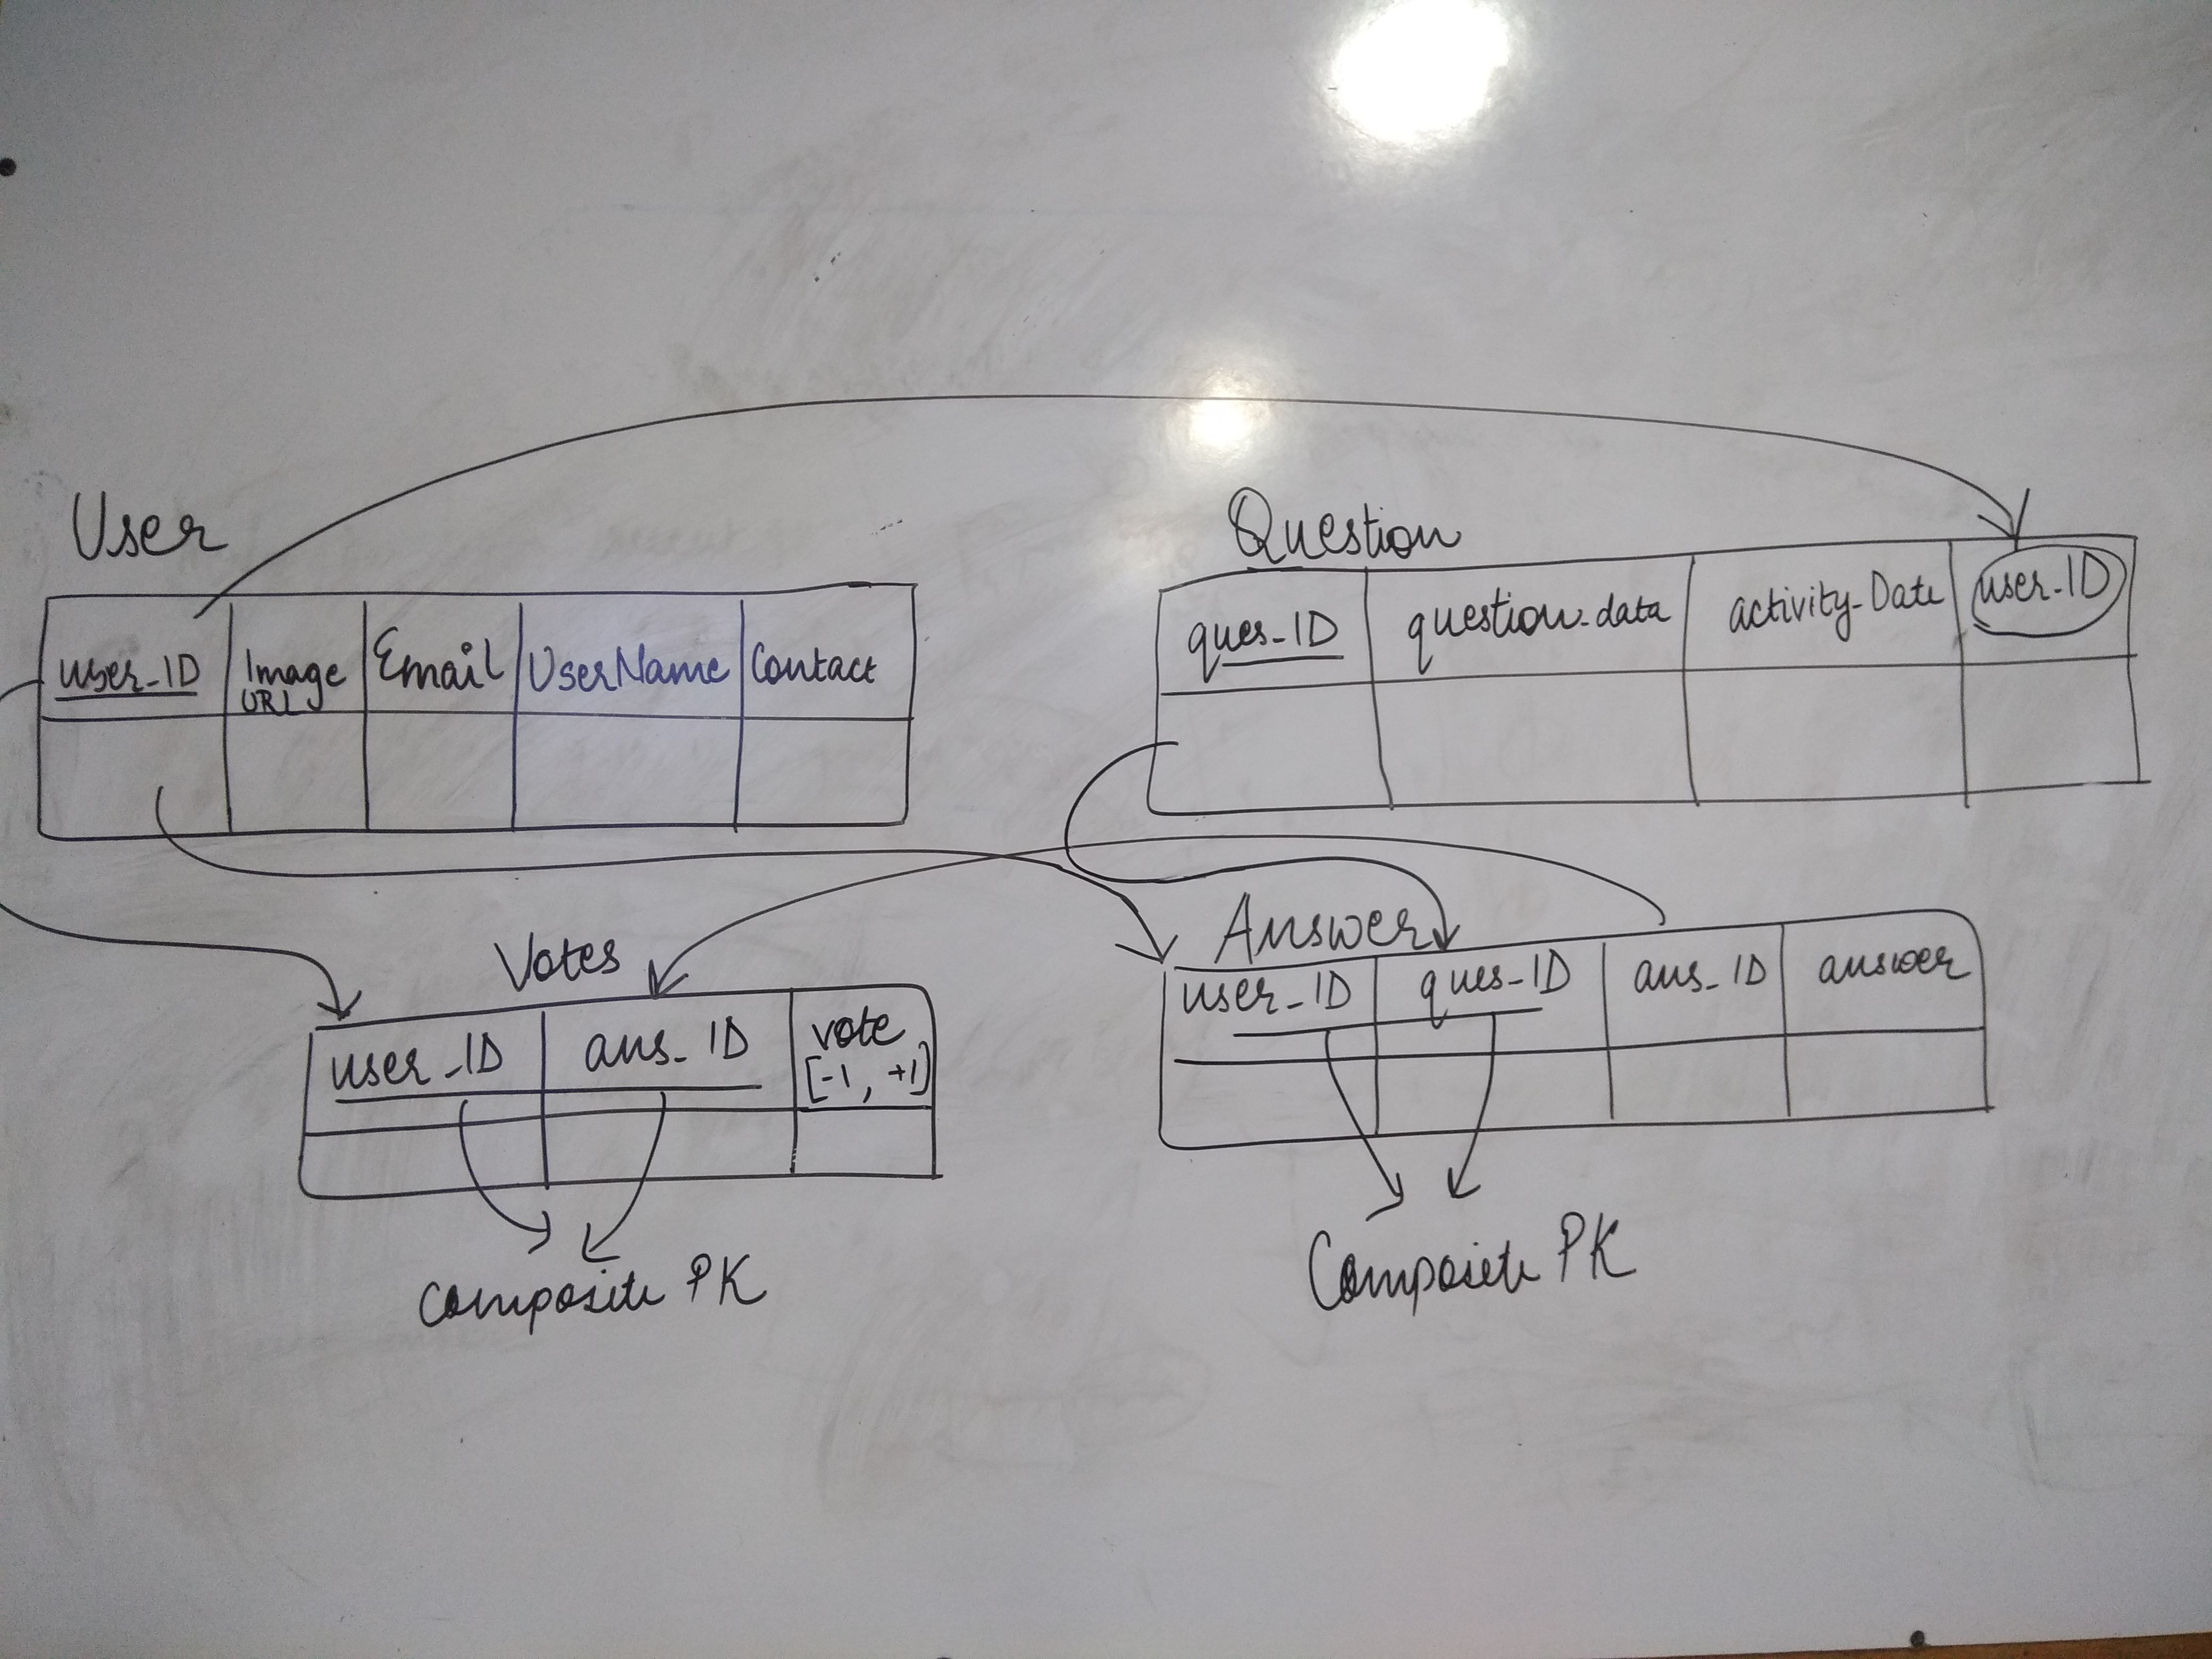 User
user_ID Image URL Email UserName Contact
Question
ques_ID question_data activity_Date user_ID
Votes
user_ID ans_ID vote [-1, +1]
composite PK
Answer
user_ID ques_ID ans_ID answer
Composite PK